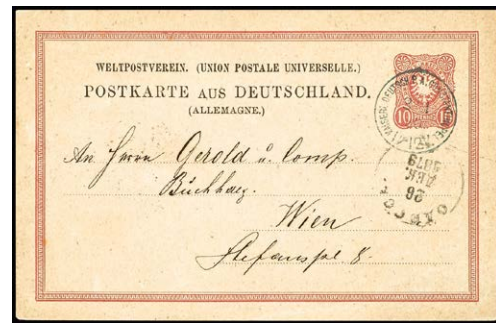 WELTPOSTVEREIN. (UNION POSTALE UNIVERSELLE.)
POSTKARTE AUS DEUTSCHLAND.
(ALLEMAGNE.)
10
PFENNIG
An Herrn Gerold u. Comp.
Buchhdg.
Wien
Stefanspl 8.
ОДЕССА
26
ДЕК.
1879